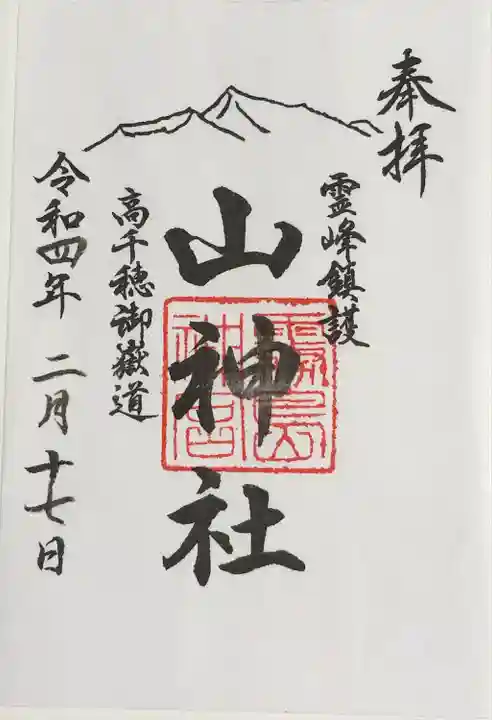 奉拝
霊峰鎮護
山神社
霧島神宮
高千穂御嶽道
令和四年 二月十七日